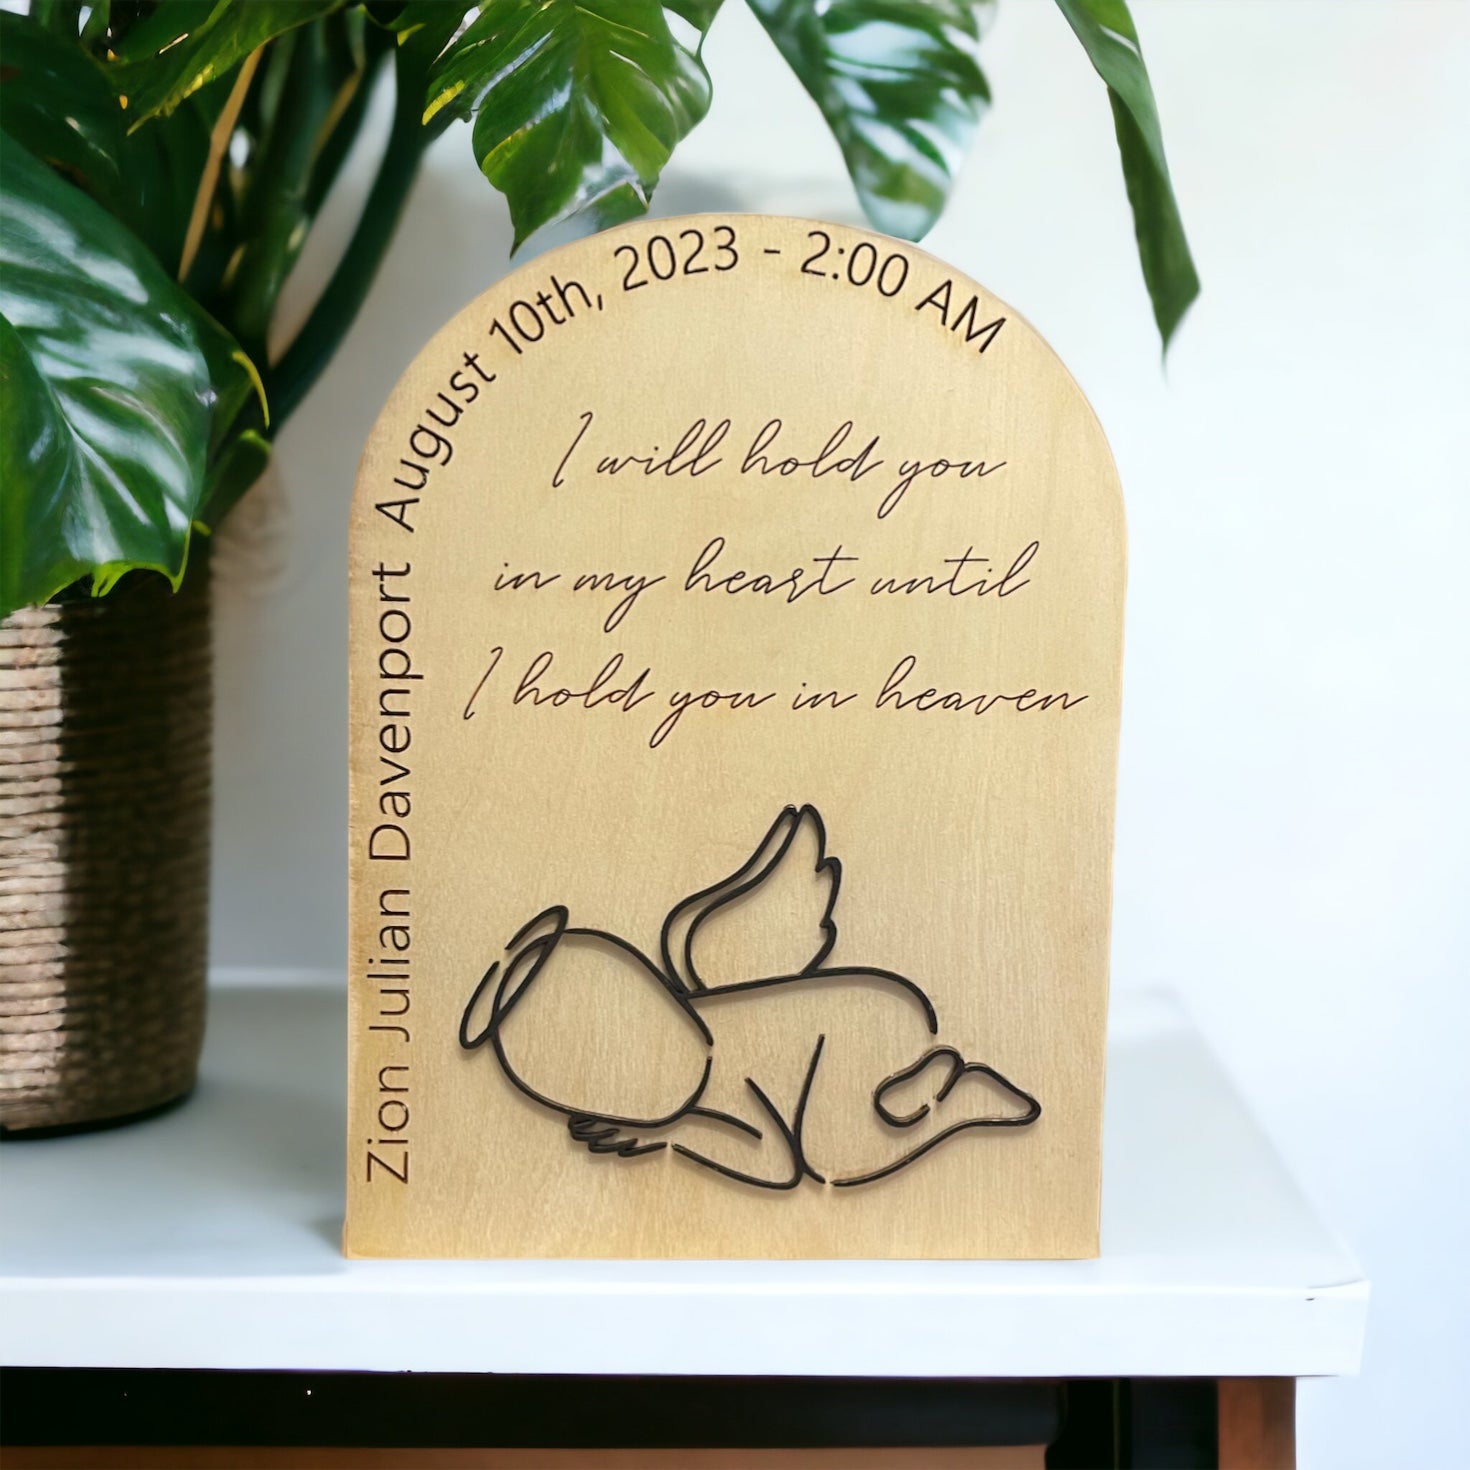 Zion Julian Davenport August 10th, 2023 - 2:00 AM
I will hold you
in my heart until
I hold you in heaven